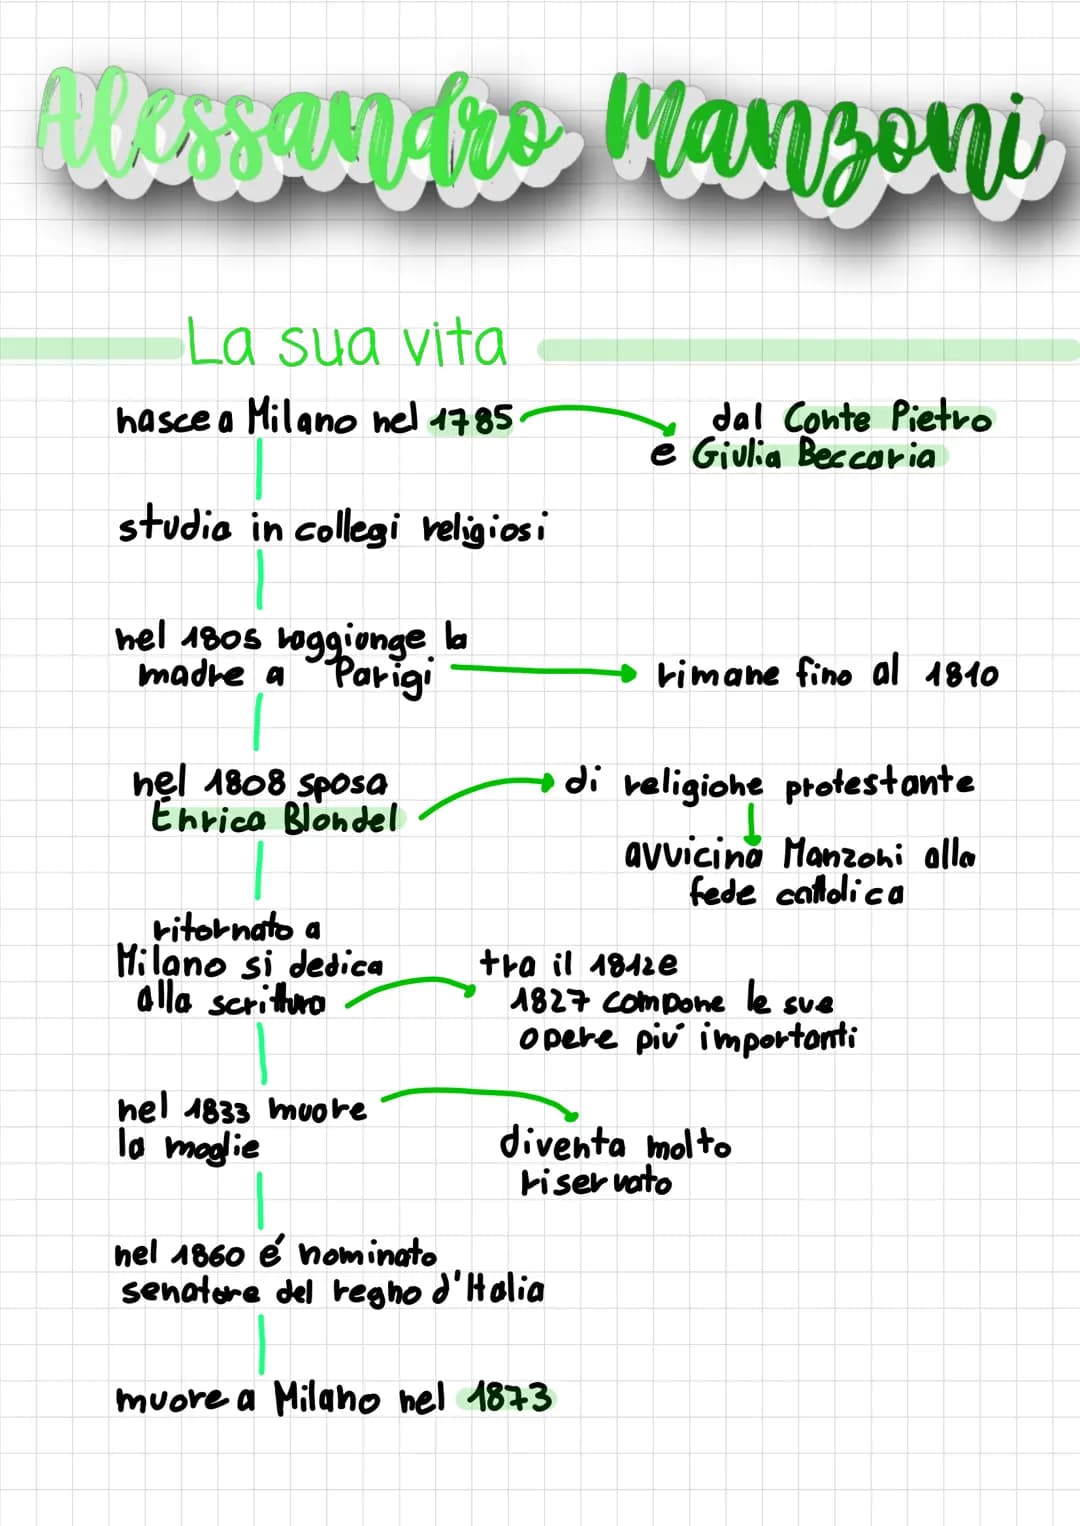 Alessandro Manzoni
La sua vita
nasce a Milano nel 1785
dal Conte Pietro
e Giulia Beccaria
studia in collegi religiosi
nel 1805 raggiunge la
madre a Parigi
rimane fino al 1810
nel 1808 sposa
Enrica Blondel
di religione protestante
avvicina Manzoni alla
fede cattolica
ritornato a
Milano si dedica
alla scrittura
tra il 1812 e
1827 compone le sue
opere piú importanti
nel 1833 muore
la moglie
diventa molto
riservato
nel 1860 é nominato
senatore del regno d'Italia
muore a Milano nel 1873